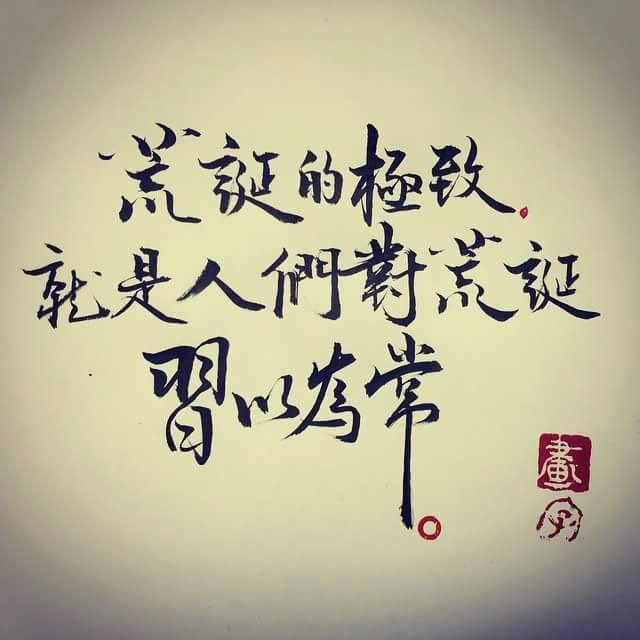 荒誕的極致，
就是人們對荒誕
習以為常。
畫
字